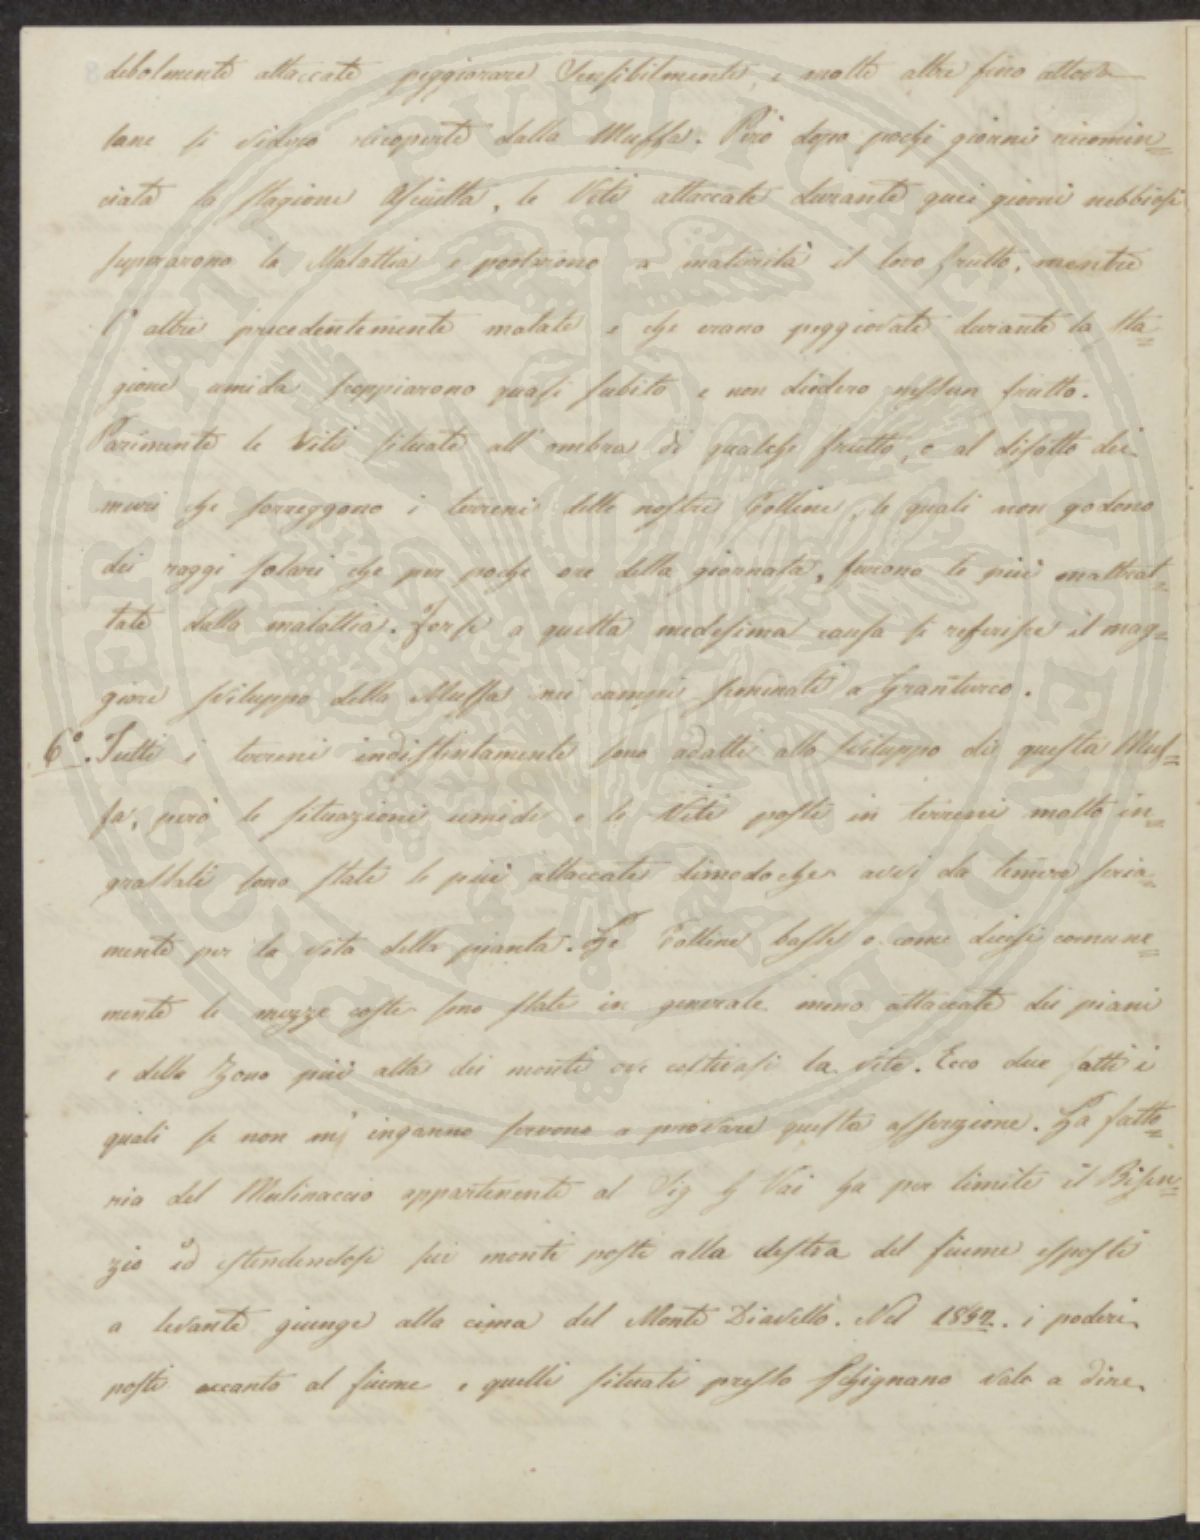 debolmente attaccate peggiorare sensibilmente, e molte altre fino allora
sane si videro ricoperte dalla Muffa. Però dopo pochi giorni ricomin=
ciata la stagione asciutta, le Viti attaccate durante quei giorni nebbiosi
superarono la Malattia e portarono a maturità il loro frutto, mentre
l'altre precedentemente malate e che erano peggiorate durante la sta=
gione umida scoppiarono quasi subito e non diedero nessun frutto.
Parimente le Viti situate all'ombra di qualche frutto, o al disotto dei
muri che sorreggono i terreni delle nostre Colline, le quali non godono
dei raggi solari che per poche ore della giornata, furono le più maltrat=
tate dalla malattia. Forse a questa medesima causa si referisce il mag=
giore sviluppo della Muffa nei campi seminati a Granturco.
6°. Tutti i terreni indistintamente sono adatti allo sviluppo di questa Muf=
fa, però le situazioni umide e le Viti poste in terreni molto in=
grassati sono state le più attaccate dimodoche avvi da temere seria=
mente per la vita della pianta. Le Colline basse o come dicesi comune=
mente le mezze coste sono state in generale meno attaccate dei piani
e della Zona più alta dei monti ove coltivasi la vite. Ecco due fatti i
quali se non m'inganno servono a provare questa asserzione. La fatto=
ria del Mulinaccio appartenente al Sig Vai ha per limite il Bisen=
zio ed estendendosi sui monti posti alla destra del fiume esposti
a levante giunge alla cima del Monte Diavello. Nel 1852. i poderi
posti accanto al fiume e quelli situati presso Schignano vale a dire